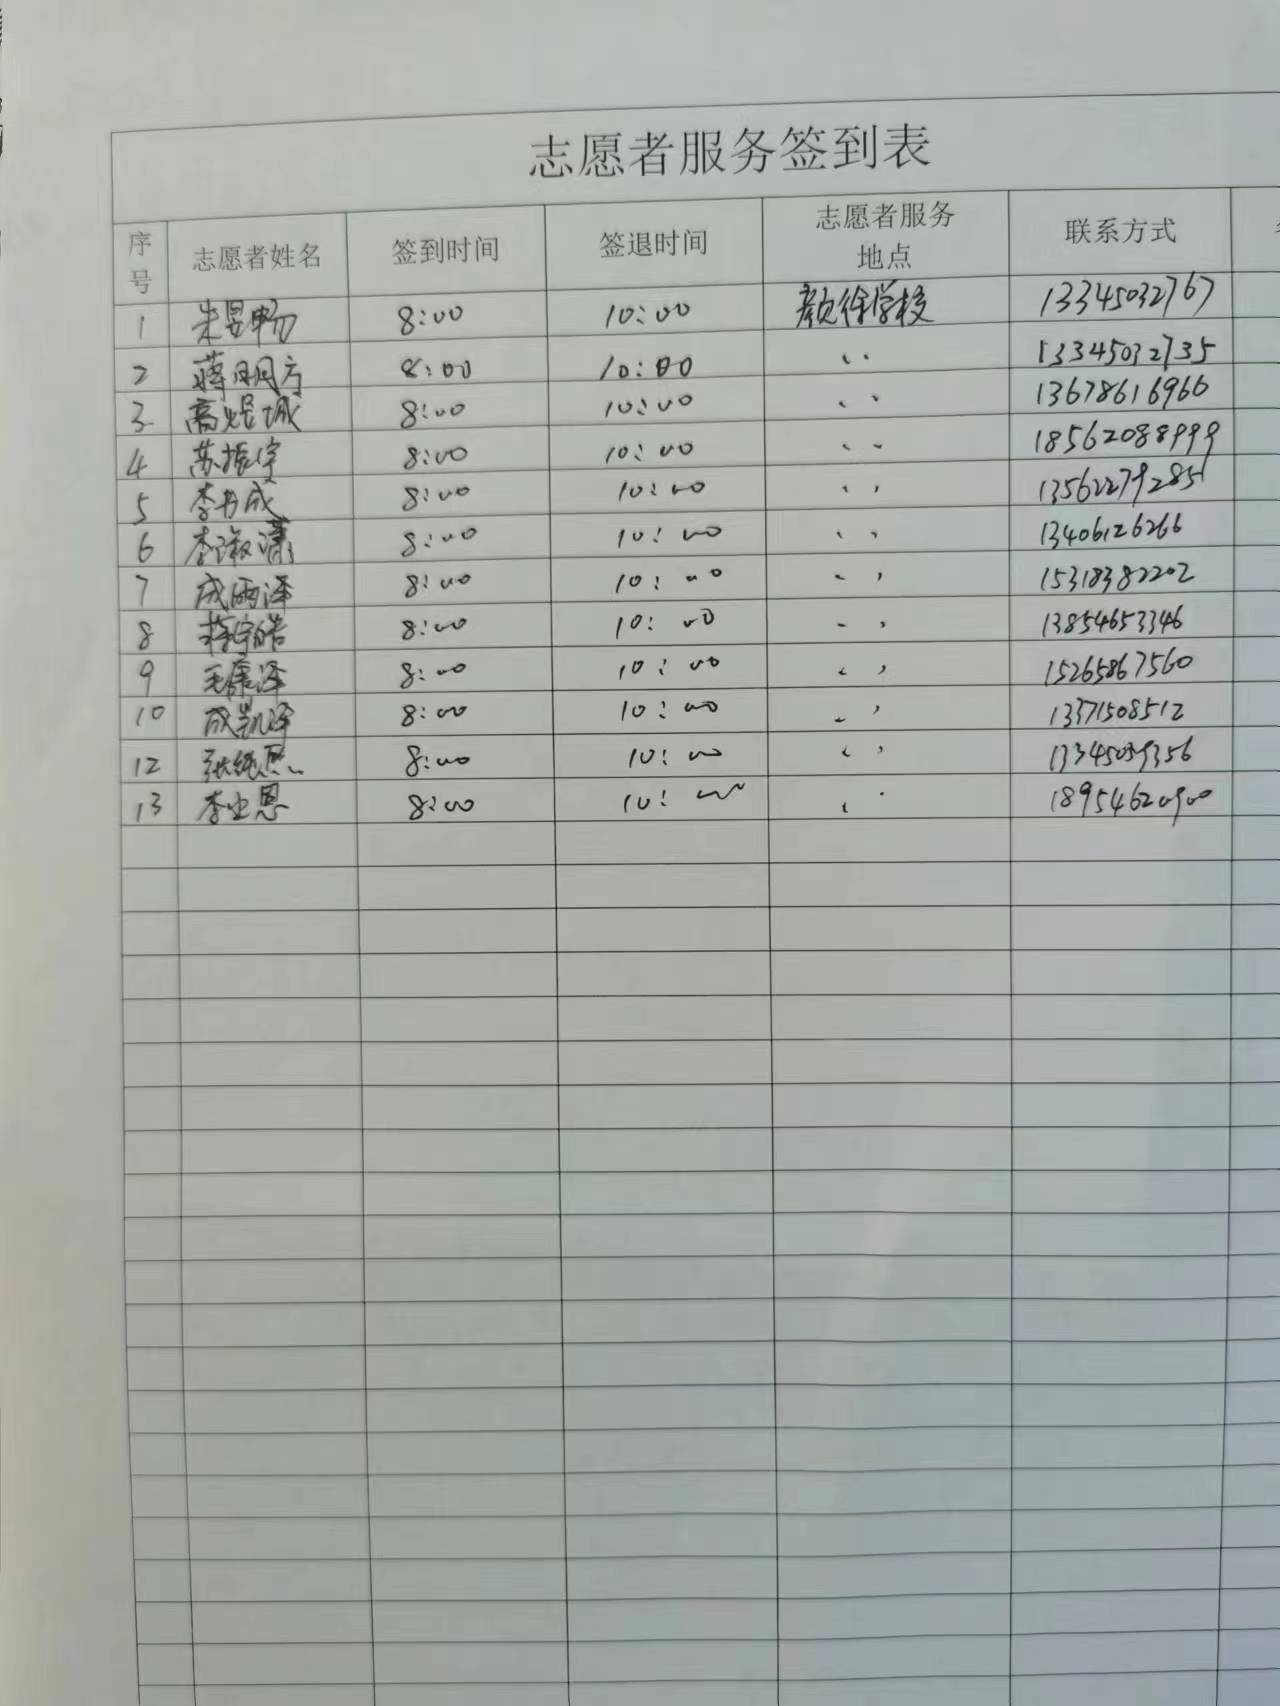 志愿者服务签到表
序号 志愿者姓名 签到时间 签退时间 志愿者服务地点 联系方式
1 朱昱畅 8:00 10:00 颜徐学校 13345032767
2 蒋明方 8:00 10:00 〃 13345032735
3 高煜城 8:00 10:00 〃 13678616966
4 苏振宇 8:00 10:00 〃 18562088999
5 李书成 8:00 10:00 〃 13562279285
6 李淑潇 8:00 10:00 〃 13406126266
7 成雨泽 8:00 10:00 〃 15318382202
8 宇皓 8:00 10:00 〃 13854653346
9 毛康泽 8:00 10:00 〃 15265867560
10 成凯泽 8:00 10:00 〃 13371508512
12 张纯恩 8:00 10:00 〃 13345039356
13 李业恩 8:00 10:00 〃 18954620900